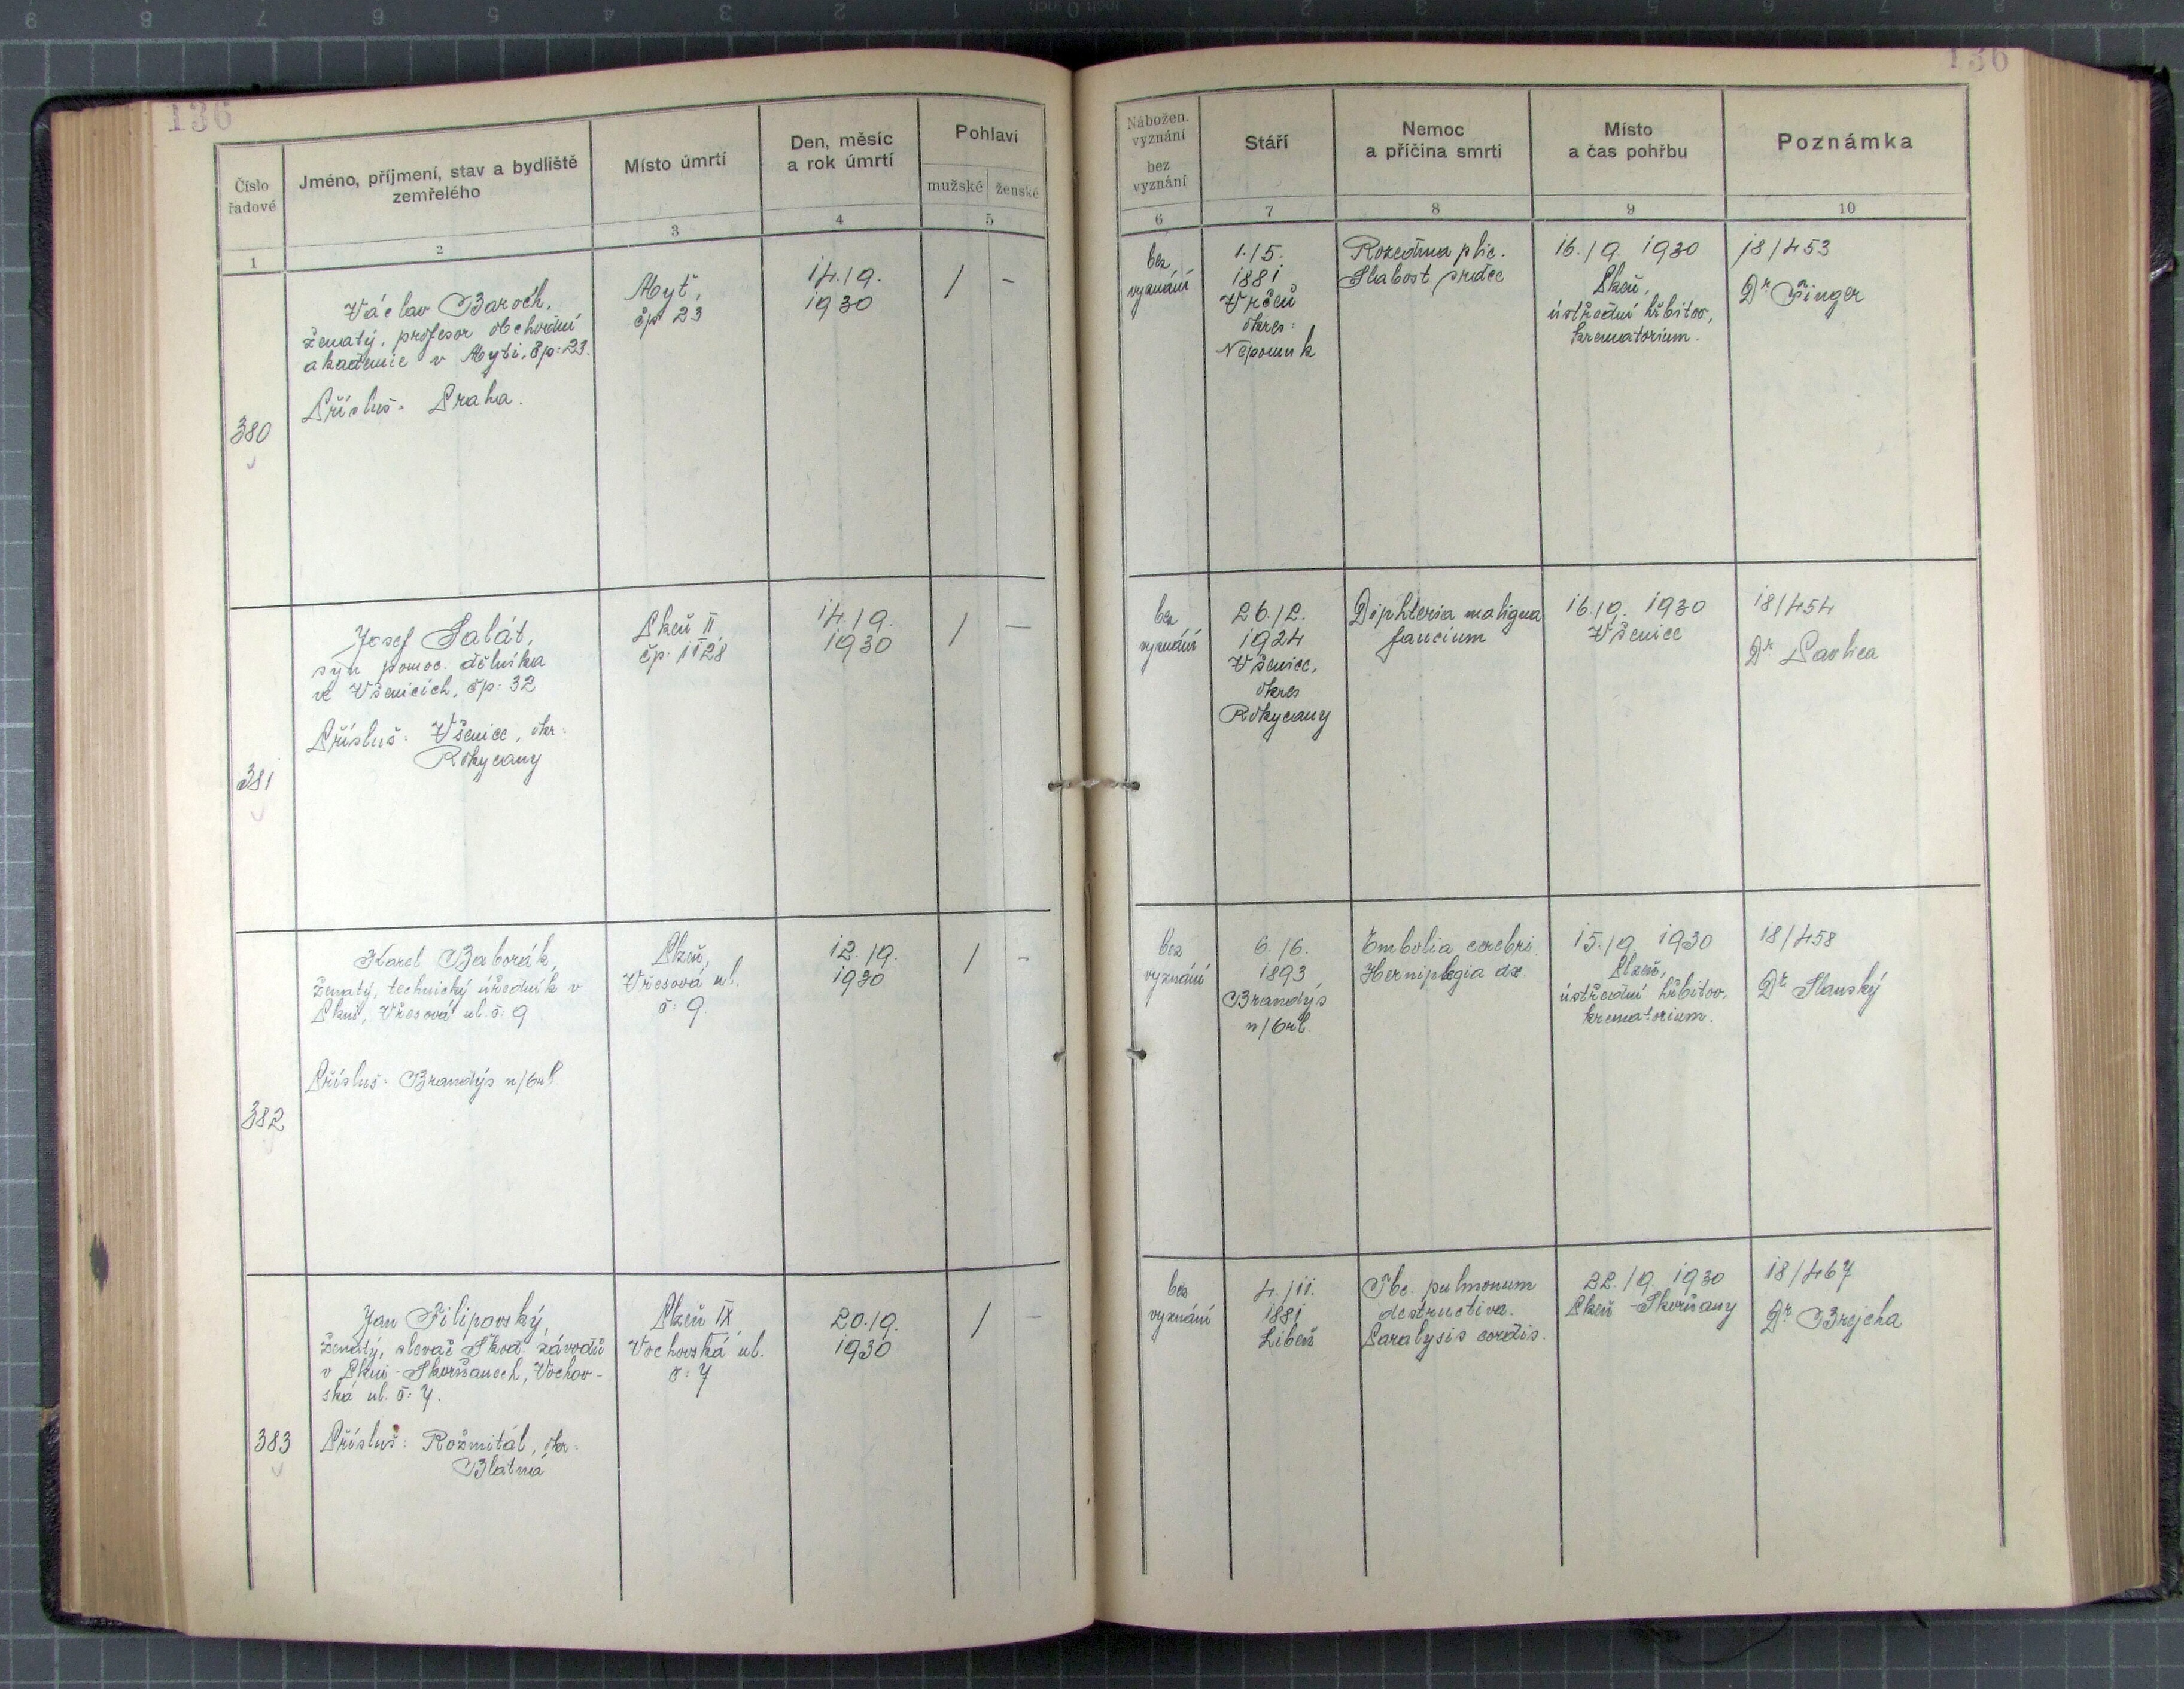 136
136
Číslo řadové
Jméno, příjmení, stav a bydliště zemřelého
Místo úmrtí
Den, měsíc a rok úmrtí
Pohlaví
mužské
ženské
Nábožen. vyznání
bez vyznání
Stáří
Nemoc a příčina smrti
Místo a čas pohřbu
Poznámka
1
2
3
4
5
6
7
8
9
10
380
Václav Baroch,
ženatý, profesor obchodní
akademie v Mýti, čp: 23.
Přísluš: Praha.
Mýt,
čp 23
14./9.
1930
/
–
bez
vyznání
1./5.
1881
Vrčeň
okres:
Nepomuk
Rozedma plic.
Slabost srdce
16./9. 1930
Plzeň,
ústřední hřbitov,
krematorium.
18/453
Dr Singer
381
Josef Salát,
syn pomoc. dělníka
ve Všenicích, čp: 32
Přísluš: Všenice, okr:
Rokycany
Plzeň II
čp: 1128
14./9.
1930
/
–
bez
vyznání
26./2.
1924
Všenice,
okres
Rokycany
Diphteria maligna
faucium
16./9. 1930
Všenice
18/454
Dr Pavlica
382
Karel Baborák,
ženatý, technický úředník v
Plzni, Vřesová ul. č: 9
Přísluš: Brandýs n/Orl.
Plzeň,
Vřesová ul.
č: 9.
12./9.
1930
/
–
bez
vyznání
6./6.
1893
Brandýs
n/Orl.
Embolia cerebri
Hemiplegia dx.
15./9. 1930
Plzeň,
ústřední hřbitov,
krematorium.
18/458
Dr Slanský
383
Jan Filipovský,
ženatý, slevač Škod. závodů
v Plzni-Skvrňanech, Vochov-
ská ul. č: 7.
Přísluš: Rožmitál, okr:
Blatná
Plzeň IX
Vochovská ul.
č: 7
20./9.
1930
/
–
bez
vyznání
4./11.
1881
Libeň
Tbc. pulmonum
destructiva.
Paralysis cordis.
22./9. 1930
Plzeň-Skvrňany
18/467
Dr Brejcha